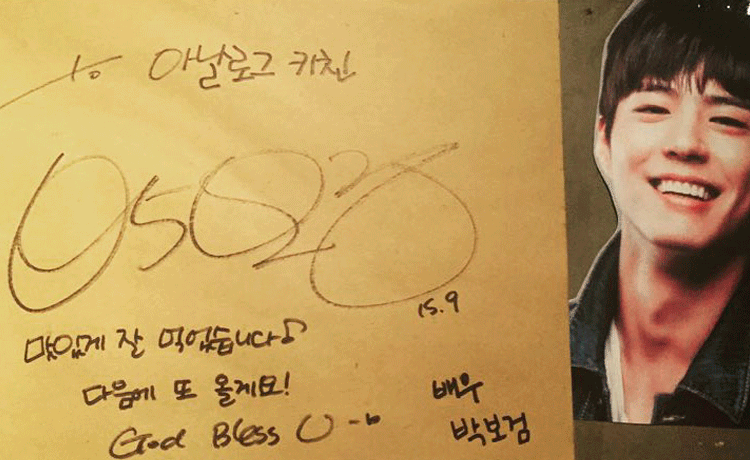 to 아날로그 키친
15.9
맛있게 잘 먹었습니다♪
다음에 또 올게요!
God Bless U
배우
박보검